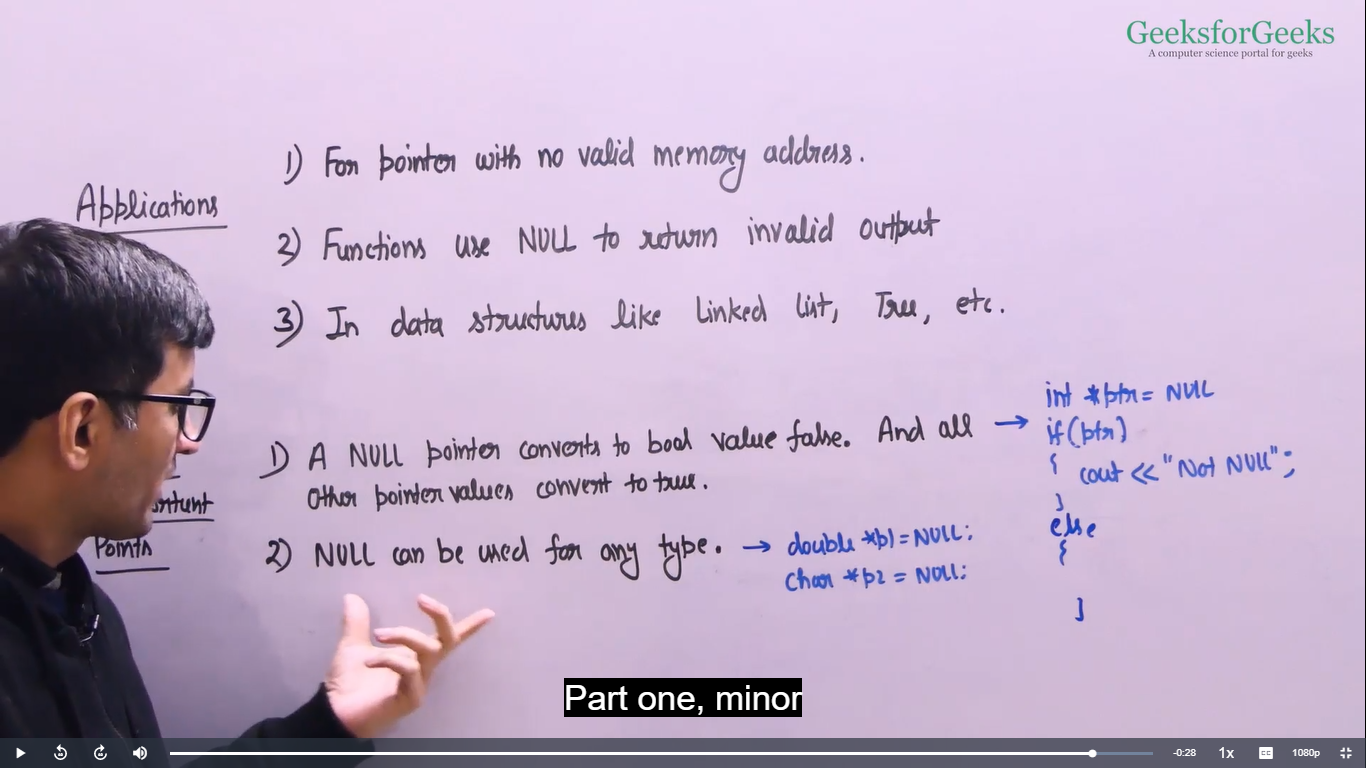 GeeksforGeeks
A computer science portal for geeks
Applications
1) For pointer with no valid memory address.
2) Functions use NULL to return invalid output
3) In data structures like Linked List, Tree, etc.
Points
1) A NULL pointer converts to bool value false. And all →
other pointer values convert to true.
2) NULL can be used for any type. → double *p1 = NULL;
char *p2 = NULL;
int *ptr = NULL
if(ptr)
{ cout << "Not NULL";
}
else
{
}
Part one, minor
-0:28 1x CC 1080p